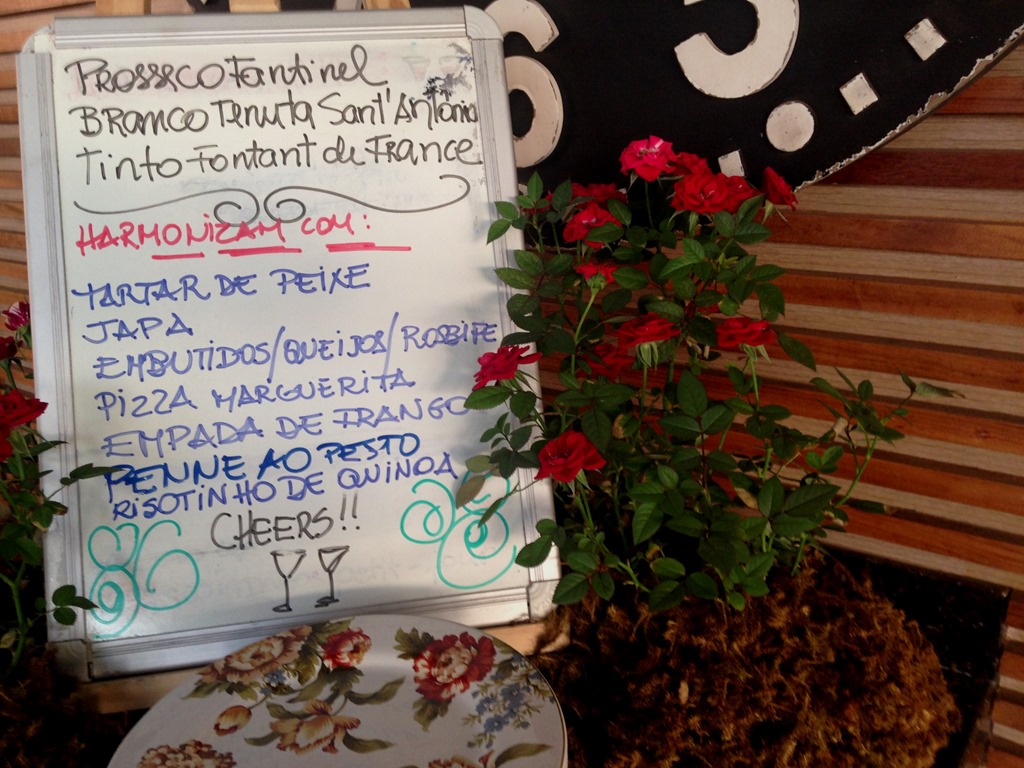 Prossеco Fantinel
Branco Tenuta Sant'Antônio
Tinto Fontant de France
HARMONIZAM COM:
TARTAR DE PEIXE
JAPA
EMBUTIDOS/QUEIJOS/ROSBIFE
PIZZA MARGUERITA
EMPADA DE FRANGO
PENNE AO PESTO
RISOTINHO DE QUINOA
CHEERS!!